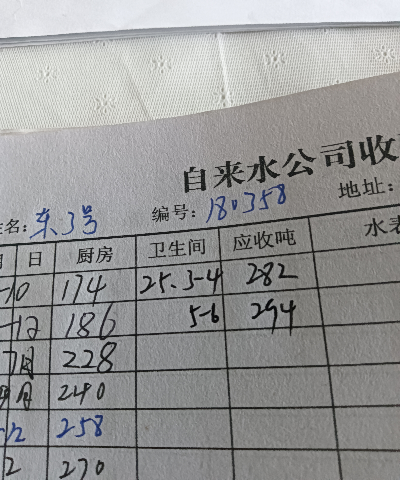 自来水公司收
名: 东3号 编号: 180358 地址:
日 厨房 卫生间 应收吨 水表
-10 174 25.3-4 282
-12 186 5-6 294
7月 228
月 240
-12 258
2 270